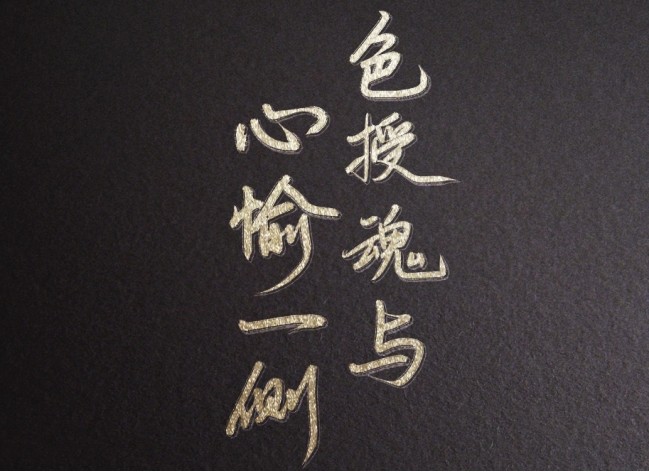 色授魂与
心愉一侧